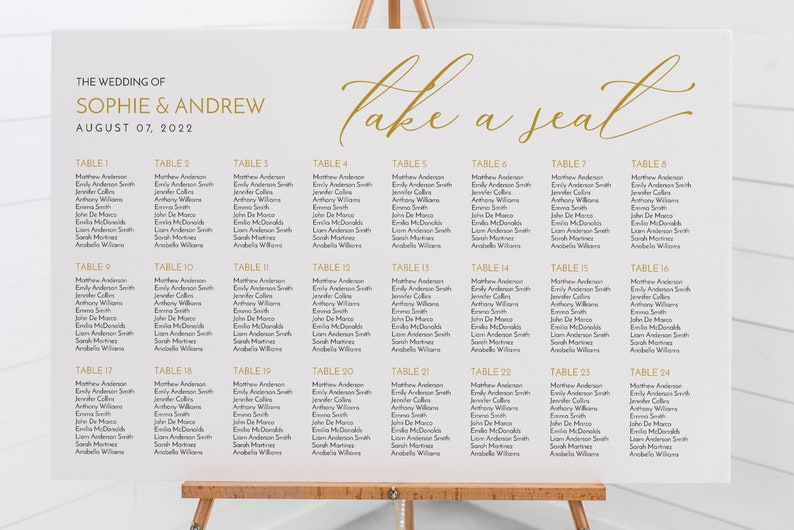 THE WEDDING OF
SOPHIE & ANDREW
AUGUST 07, 2022
take a seat
TABLE 1
Matthew Anderson
Emily Anderson Smith
Jennifer Collins
Anthony Williams
Emma Smith
John De Marco
Emilia McDonalds
Liam Anderson Smith
Sarah Martinez
Anabella Williams
TABLE 2
Matthew Anderson
Emily Anderson Smith
Jennifer Collins
Anthony Williams
Emma Smith
John De Marco
Emilia McDonalds
Liam Anderson Smith
Sarah Martinez
Anabella Williams
TABLE 3
Matthew Anderson
Emily Anderson Smith
Jennifer Collins
Anthony Williams
Emma Smith
John De Marco
Emilia McDonalds
Liam Anderson Smith
Sarah Martinez
Anabella Williams
TABLE 4
Matthew Anderson
Emily Anderson Smith
Jennifer Collins
Anthony Williams
Emma Smith
John De Marco
Emilia McDonalds
Liam Anderson Smith
Sarah Martinez
Anabella Williams
TABLE 5
Matthew Anderson
Emily Anderson Smith
Jennifer Collins
Anthony Williams
Emma Smith
John De Marco
Emilia McDonalds
Liam Anderson Smith
Sarah Martinez
Anabella Williams
TABLE 6
Matthew Anderson
Emily Anderson Smith
Jennifer Collins
Anthony Williams
Emma Smith
John De Marco
Emilia McDonalds
Liam Anderson Smith
Sarah Martinez
Anabella Williams
TABLE 7
Matthew Anderson
Emily Anderson Smith
Jennifer Collins
Anthony Williams
Emma Smith
John De Marco
Emilia McDonalds
Liam Anderson Smith
Sarah Martinez
Anabella Williams
TABLE 8
Matthew Anderson
Emily Anderson Smith
Jennifer Collins
Anthony Williams
Emma Smith
John De Marco
Emilia McDonalds
Liam Anderson Smith
Sarah Martinez
Anabella Williams
TABLE 9
Matthew Anderson
Emily Anderson Smith
Jennifer Collins
Anthony Williams
Emma Smith
John De Marco
Emilia McDonalds
Liam Anderson Smith
Sarah Martinez
Anabella Williams
TABLE 10
Matthew Anderson
Emily Anderson Smith
Jennifer Collins
Anthony Williams
Emma Smith
John De Marco
Emilia McDonalds
Liam Anderson Smith
Sarah Martinez
Anabella Williams
TABLE 11
Matthew Anderson
Emily Anderson Smith
Jennifer Collins
Anthony Williams
Emma Smith
John De Marco
Emilia McDonalds
Liam Anderson Smith
Sarah Martinez
Anabella Williams
TABLE 12
Matthew Anderson
Emily Anderson Smith
Jennifer Collins
Anthony Williams
Emma Smith
John De Marco
Emilia McDonalds
Liam Anderson Smith
Sarah Martinez
Anabella Williams
TABLE 13
Matthew Anderson
Emily Anderson Smith
Jennifer Collins
Anthony Williams
Emma Smith
John De Marco
Emilia McDonalds
Liam Anderson Smith
Sarah Martinez
Anabella Williams
TABLE 14
Matthew Anderson
Emily Anderson Smith
Jennifer Collins
Anthony Williams
Emma Smith
John De Marco
Emilia McDonalds
Liam Anderson Smith
Sarah Martinez
Anabella Williams
TABLE 15
Matthew Anderson
Emily Anderson Smith
Jennifer Collins
Anthony Williams
Emma Smith
John De Marco
Emilia McDonalds
Liam Anderson Smith
Sarah Martinez
Anabella Williams
TABLE 16
Matthew Anderson
Emily Anderson Smith
Jennifer Collins
Anthony Williams
Emma Smith
John De Marco
Emilia McDonalds
Liam Anderson Smith
Sarah Martinez
Anabella Williams
TABLE 17
Matthew Anderson
Emily Anderson Smith
Jennifer Collins
Anthony Williams
Emma Smith
John De Marco
Emilia McDonalds
Liam Anderson Smith
Sarah Martinez
Anabella Williams
TABLE 18
Matthew Anderson
Emily Anderson Smith
Jennifer Collins
Anthony Williams
Emma Smith
John De Marco
Emilia McDonalds
Liam Anderson Smith
Sarah Martinez
Anabella Williams
TABLE 19
Matthew Anderson
Emily Anderson Smith
Jennifer Collins
Anthony Williams
Emma Smith
John De Marco
Emilia McDonalds
Liam Anderson Smith
Sarah Martinez
Anabella Williams
TABLE 20
Matthew Anderson
Emily Anderson Smith
Jennifer Collins
Anthony Williams
Emma Smith
John De Marco
Emilia McDonalds
Liam Anderson Smith
Sarah Martinez
Anabella Williams
TABLE 21
Matthew Anderson
Emily Anderson Smith
Jennifer Collins
Anthony Williams
Emma Smith
John De Marco
Emilia McDonalds
Liam Anderson Smith
Sarah Martinez
Anabella Williams
TABLE 22
Matthew Anderson
Emily Anderson Smith
Jennifer Collins
Anthony Williams
Emma Smith
John De Marco
Emilia McDonalds
Liam Anderson Smith
Sarah Martinez
Anabella Williams
TABLE 23
Matthew Anderson
Emily Anderson Smith
Jennifer Collins
Anthony Williams
Emma Smith
John De Marco
Emilia McDonalds
Liam Anderson Smith
Sarah Martinez
Anabella Williams
TABLE 24
Matthew Anderson
Emily Anderson Smith
Jennifer Collins
Anthony Williams
Emma Smith
John De Marco
Emilia McDonalds
Liam Anderson Smith
Sarah Martinez
Anabella Williams